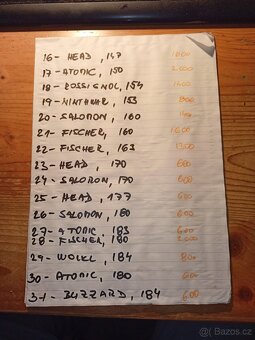 16 - HEAD, 147 1000
17 - ATOMIC, 150 2.000
18 - ROSSIGNOL, 154 1400
19 - , 153 800
20 - SALOMON, 160
21 - FISCHER, 160 1.600
22 - FISCHER, 163 1300
23 - HEAD, 170 600
24 - SALOMON, 170 600
25 - HEAD, 177 600
26 - SALOMON, 180 600
27 - ATOMIC, 183 600
28 - FISCHER, 180 2.000
29 - WOLKL, 184 800
30 - ATOMIC, 180 600
31 - BUZZARD, 184 600
Bazos.cz